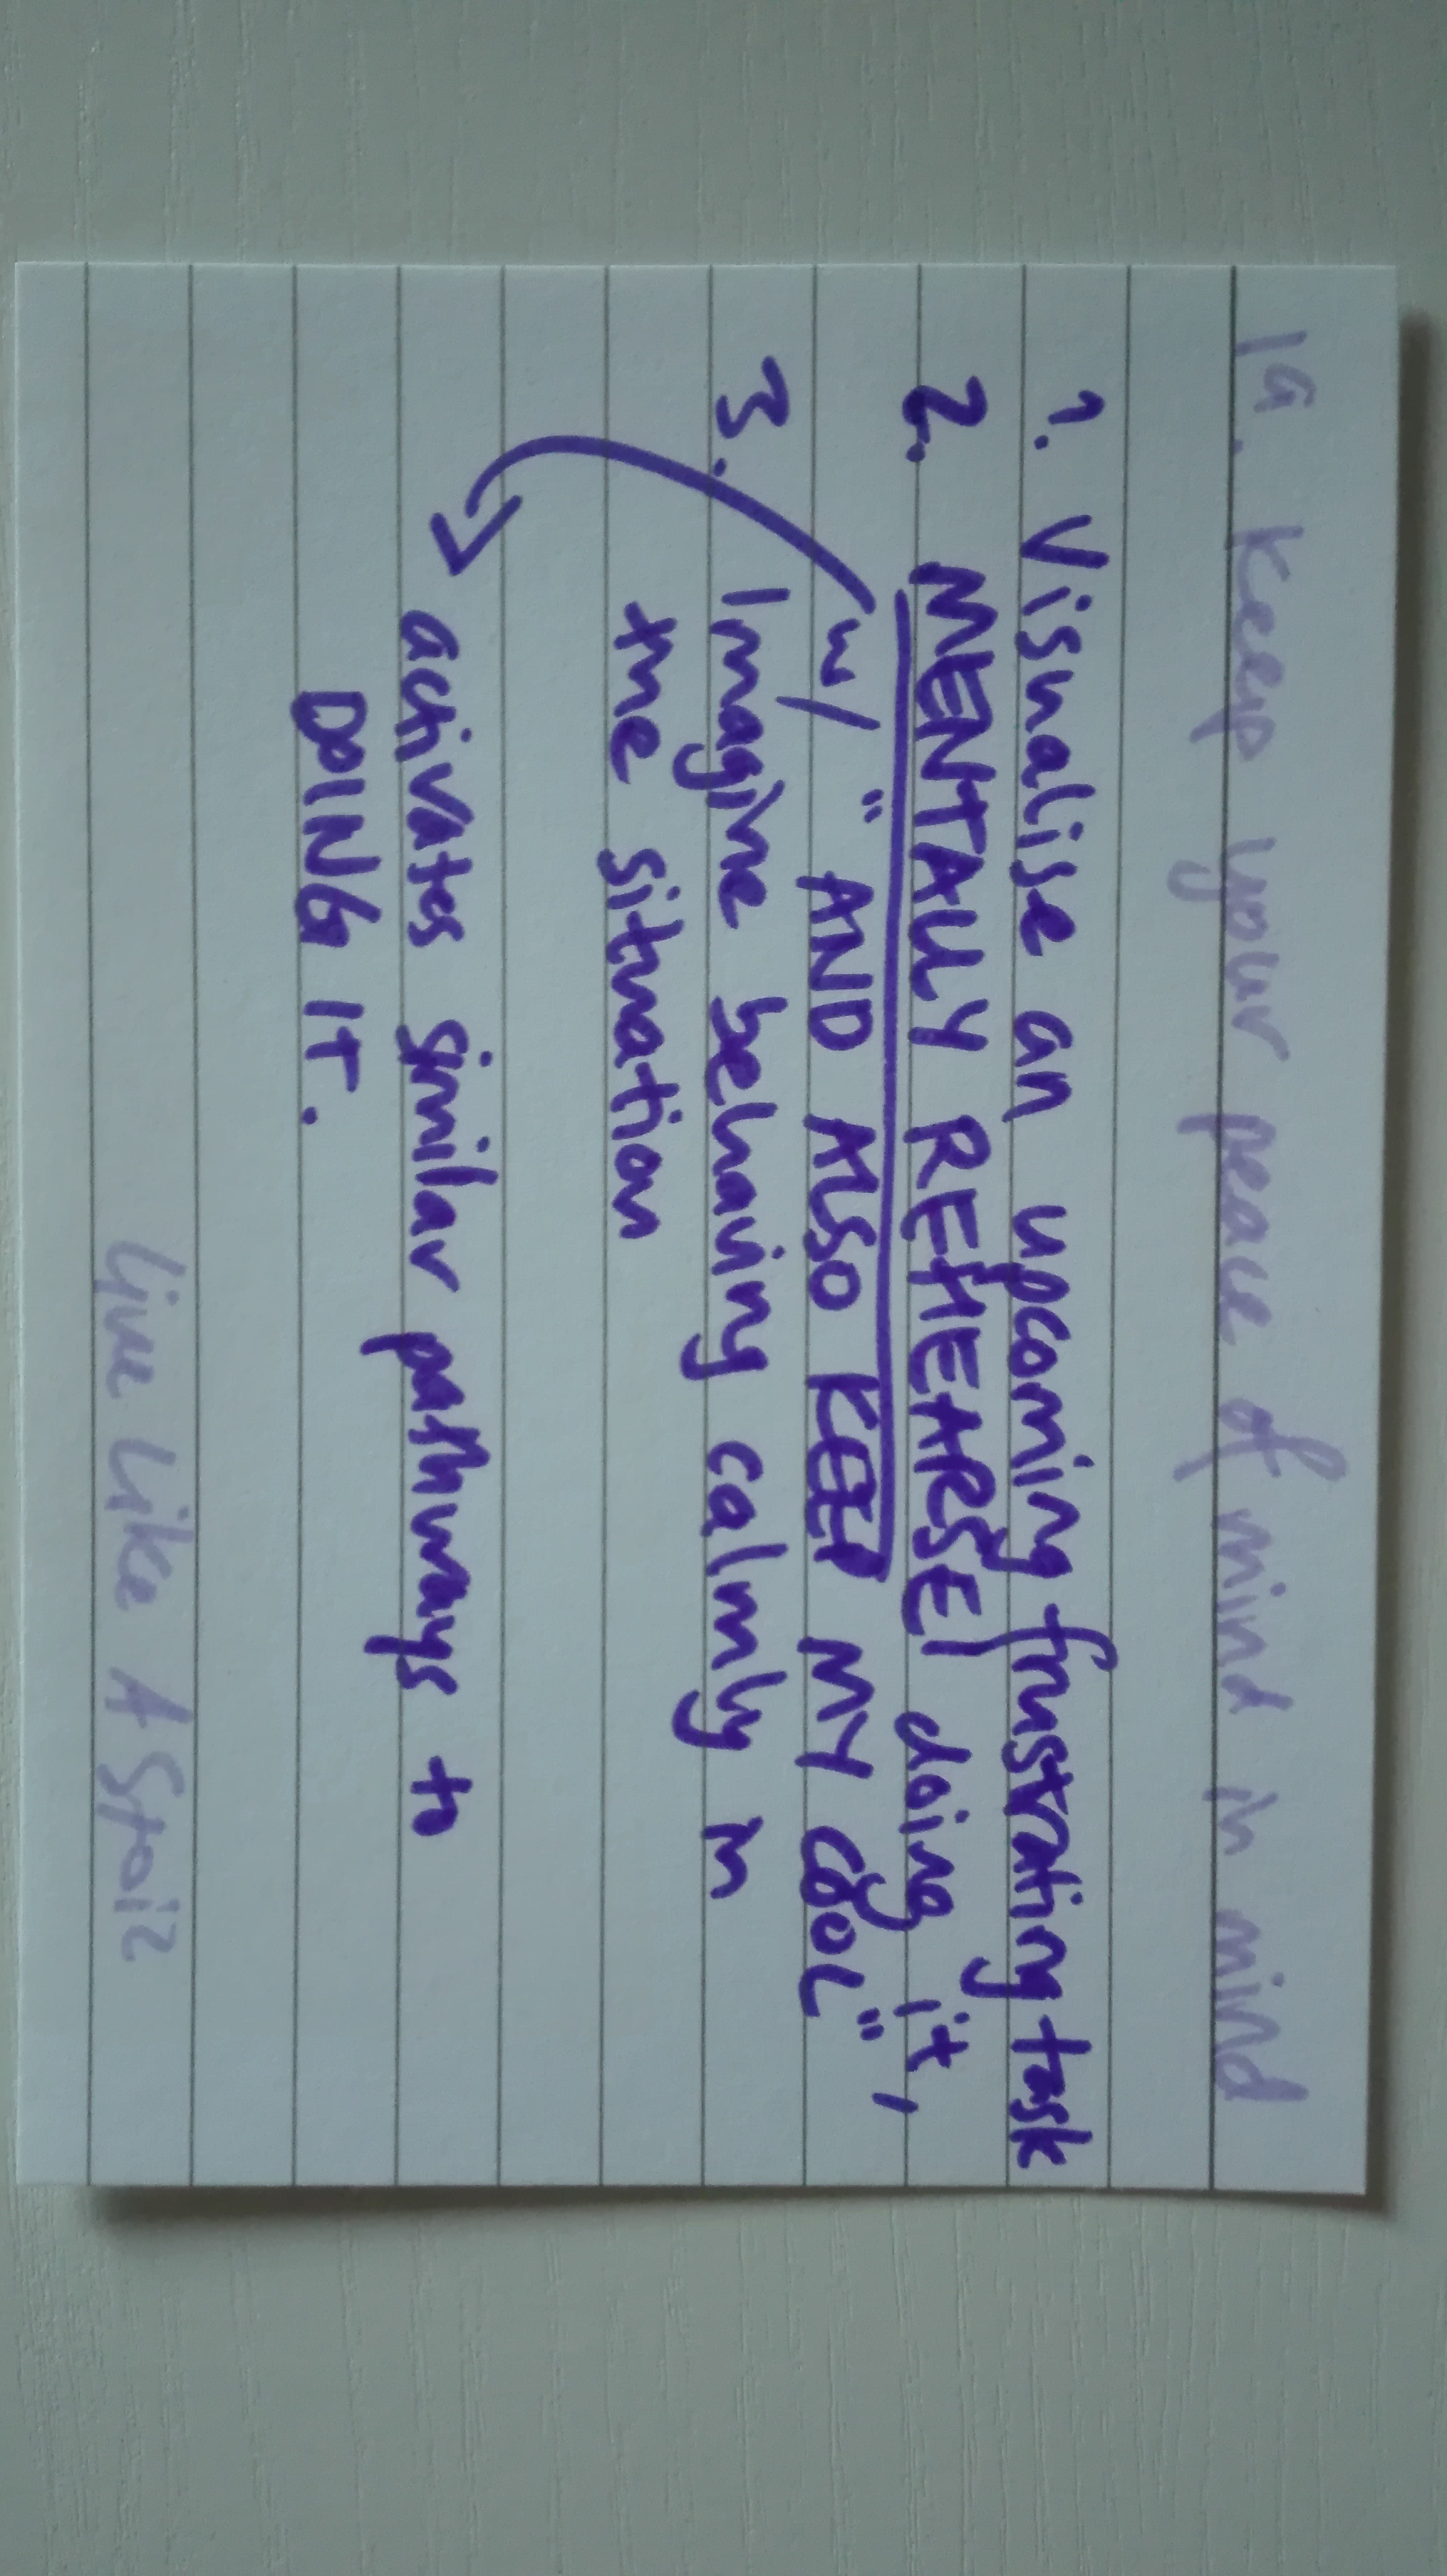 1a. Keep your peace of mind in mind
1. Visualise an upcoming frustrating task
2. MENTALLY REHEARSE doing it,
w/ "AND ALSO KEEP MY COOL"
3. Imagine behaving calmly in
the situation
→ activates similar pathways to
DOING IT.
Live Like A Stoic